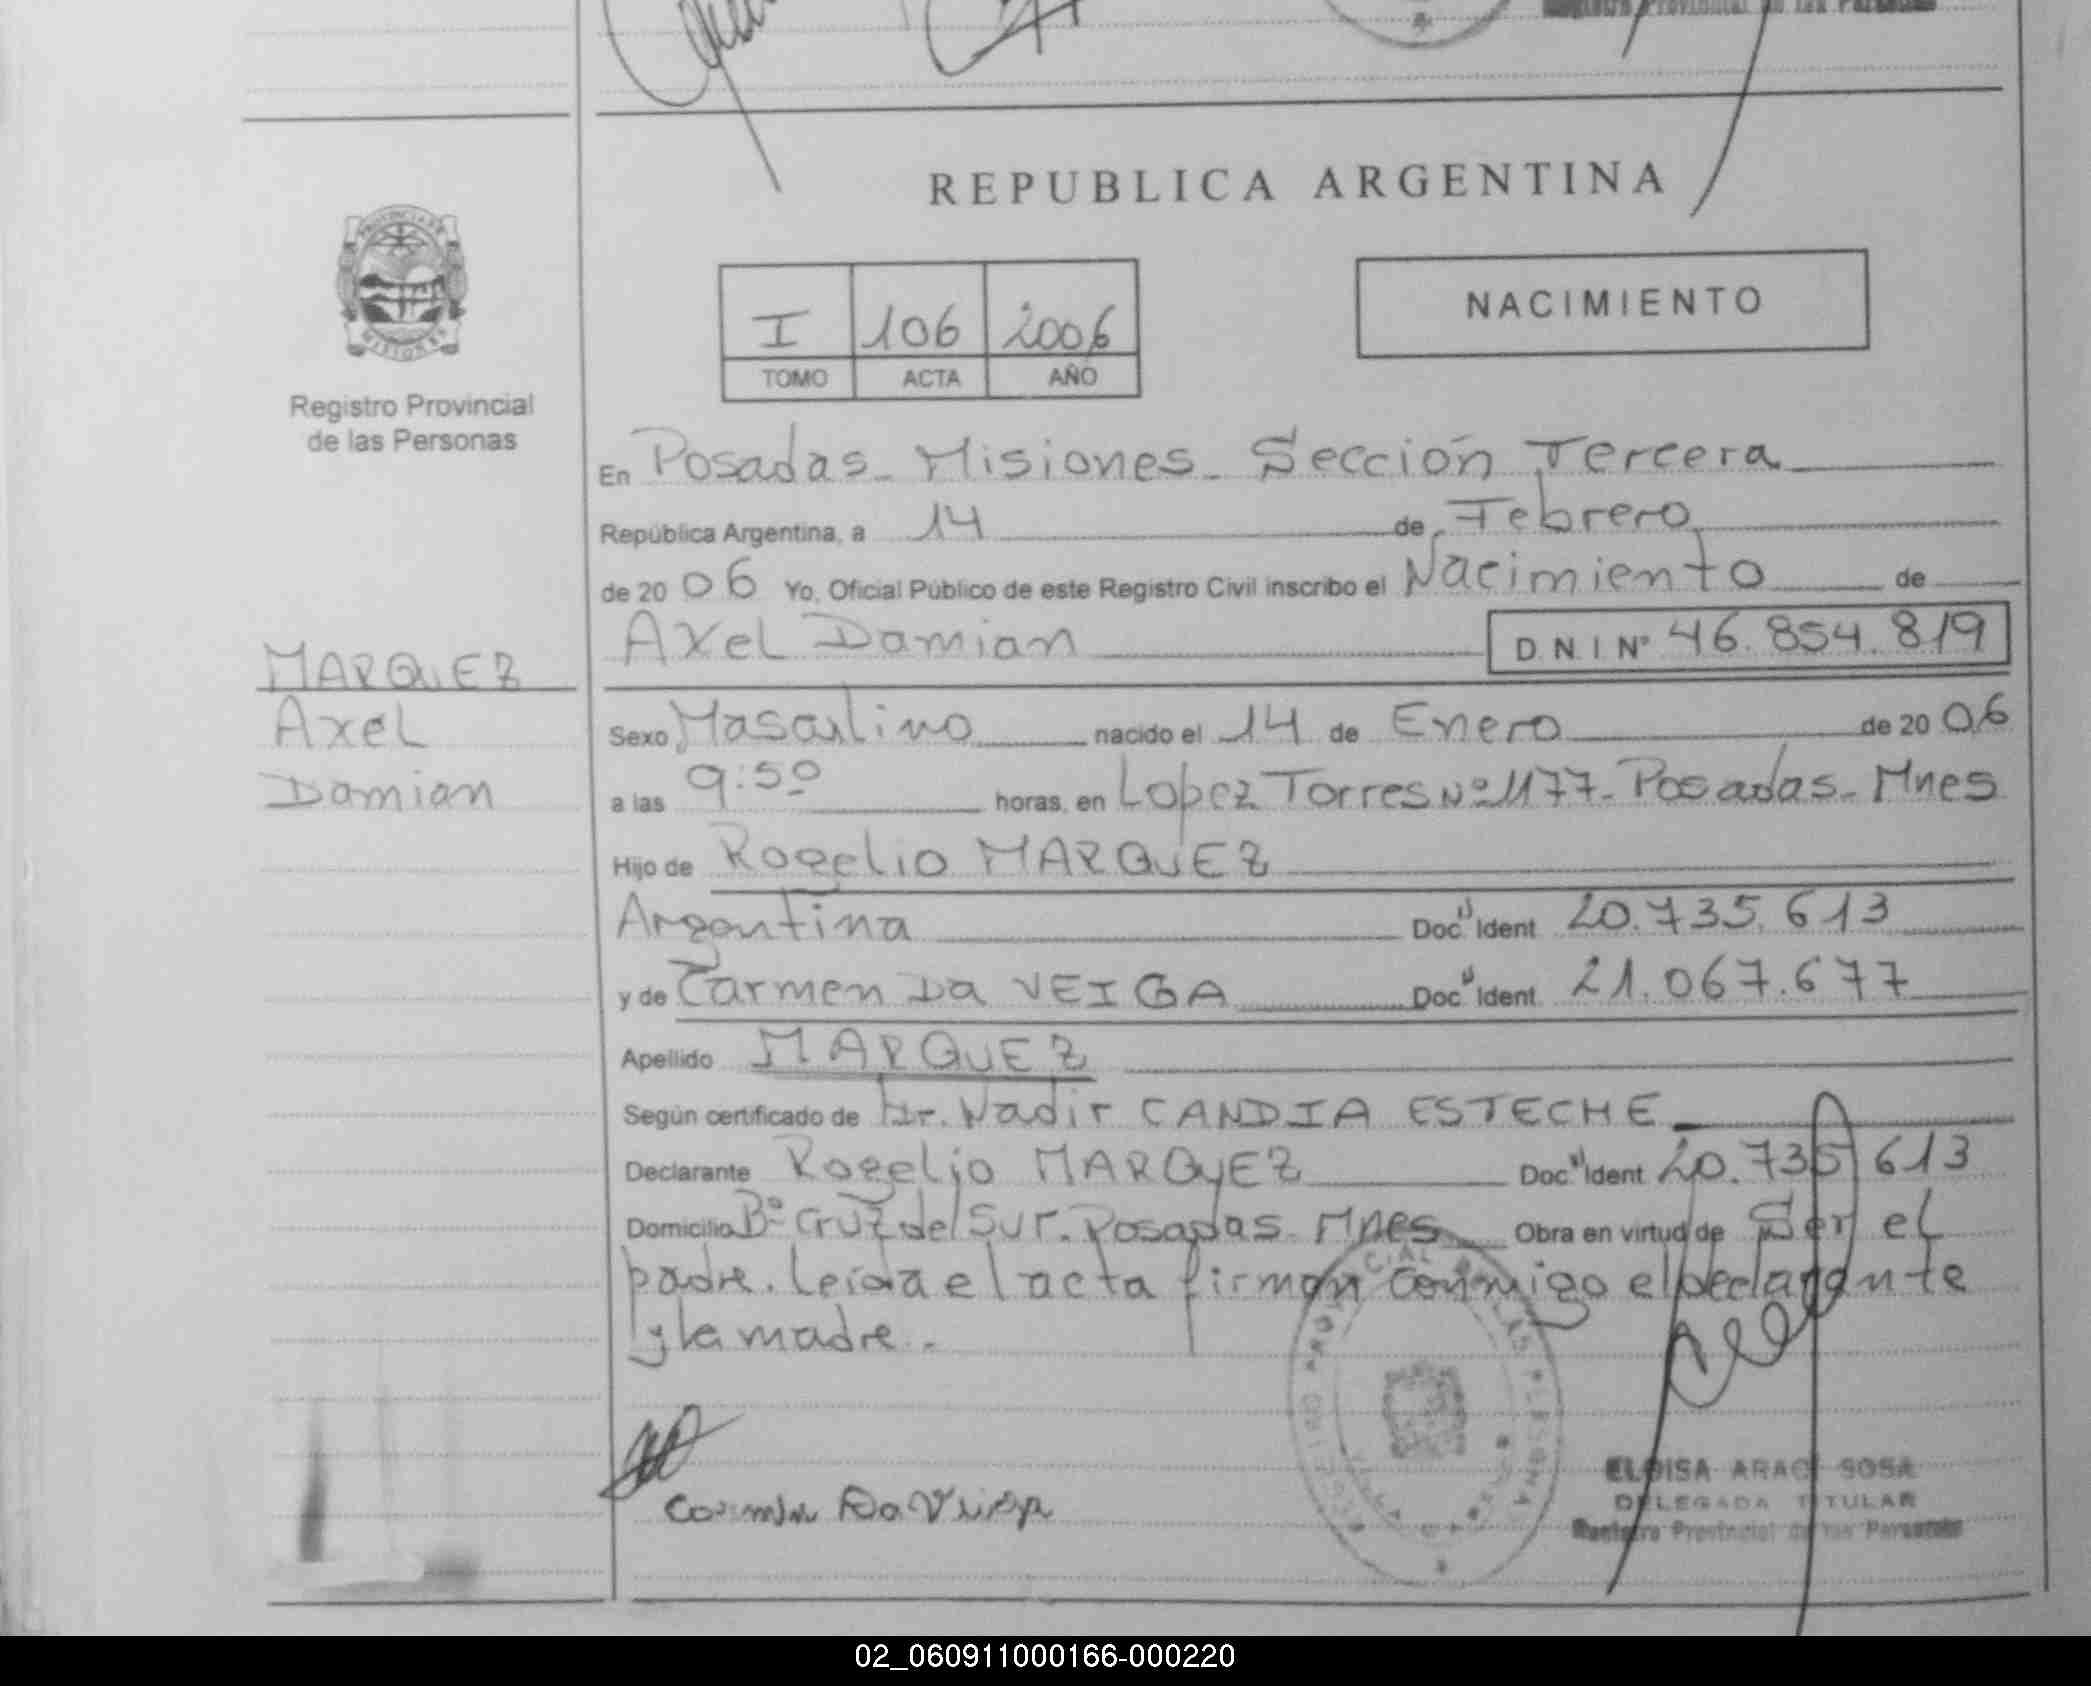 Registro Provincial de las Personas
REPUBLICA ARGENTINA
PROVINCIA DE
MISIONES
I 106 2006
TOMO ACTA AÑO
NACIMIENTO
Registro Provincial
de las Personas
En Posadas - Misiones - Sección Tercera
República Argentina, a 14 de Febrero
de 20 06 Yo, Oficial Público de este Registro Civil inscribo el Nacimiento de
Axel Damian D.N.I Nº 46.854.819
MARQUEZ
Axel
Damian
Sexo Masculino nacido el 14 de Enero de 20 06
a las 9:50 horas, en Lopez Torres Nº 1177 - Posadas - Mnes
Hijo de Rogelio MARQUEZ
Argentina Doc. Ident 20.735.613
y de Carmen Da VEIGA Doc. Ident 21.067.677
Apellido MARQUEZ
Según certificado de Dr. Nadir CANDIA ESTECHE
Declarante Rogelio MARQUEZ Doc. Ident 20.735.613
Domicilio Bº Cruz del Sur. Posadas - Mnes Obra en virtud de Ser el
padre. Leida el acta firman conmigo el Declarante
y la madre.-
Carmen Da Veiga
ELOISA ARACI SOSA
DELEGADA TITULAR
Registro Provincial de las Personas
02_060911000166-000220